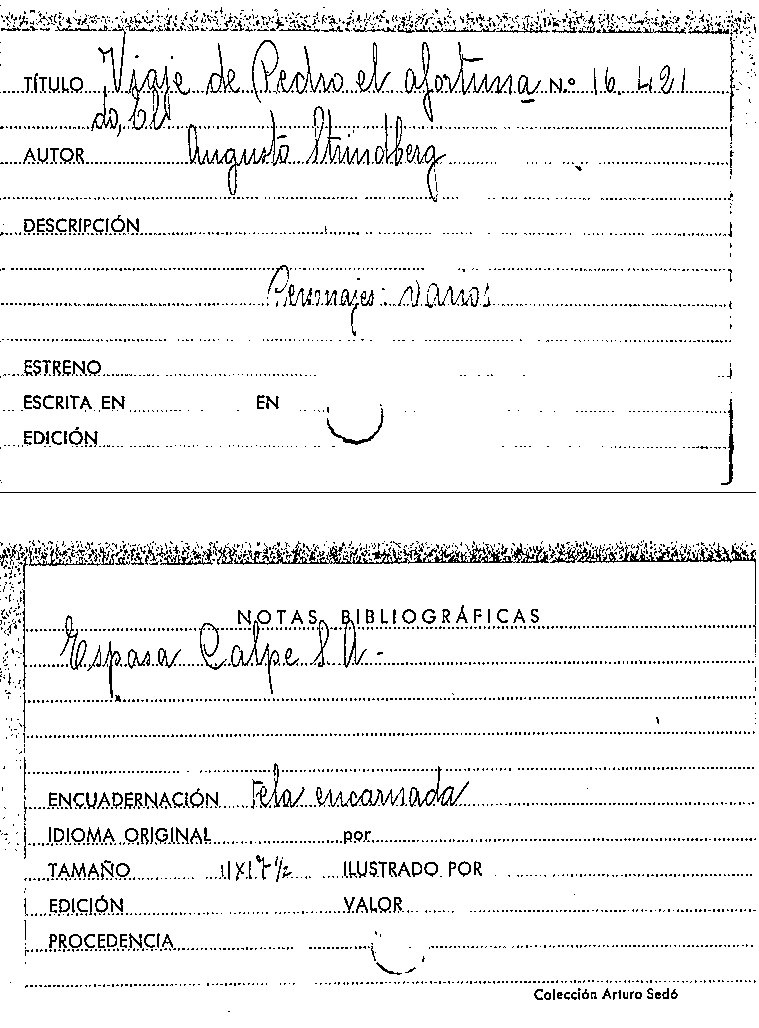 TÍTULO Viaje de Pedro el afortuna Nº 16.421
do, El
AUTOR Augusto Strindberg
DESCRIPCIÓN
Personajes: varios
ESTRENO
ESCRITA EN EN
EDICIÓN
NOTAS BIBLIOGRÁFICAS
Espasa Calpe S A -
ENCUADERNACIÓN Tela encarnada
IDIOMA ORIGINAL por
TAMAÑO 11X17 1/2 ILUSTRADO POR
EDICIÓN VALOR
PROCEDENCIA
Colección Arturo Sedó